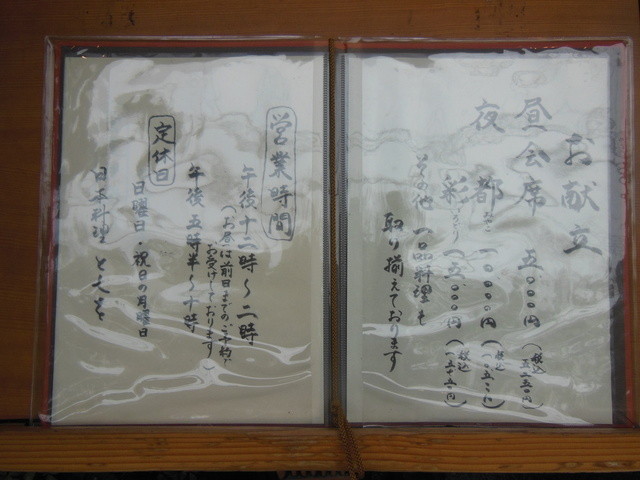 お献立
昼 会席 五、〇〇〇円（税込 五二五〇円）
夜 都 みやこ 一〇、〇〇〇円（税込 一〇五〇〇円）
彩 いろどり 一五、〇〇〇円（税込 一五七五〇円）
その他 一品料理も
取り揃えております
営業時間
午後十二時〜二時
（お昼は前日までのご予約で
お受けしております）
午後五時半〜十時
定休日
日曜日・祝日の月曜日
日本料理 と